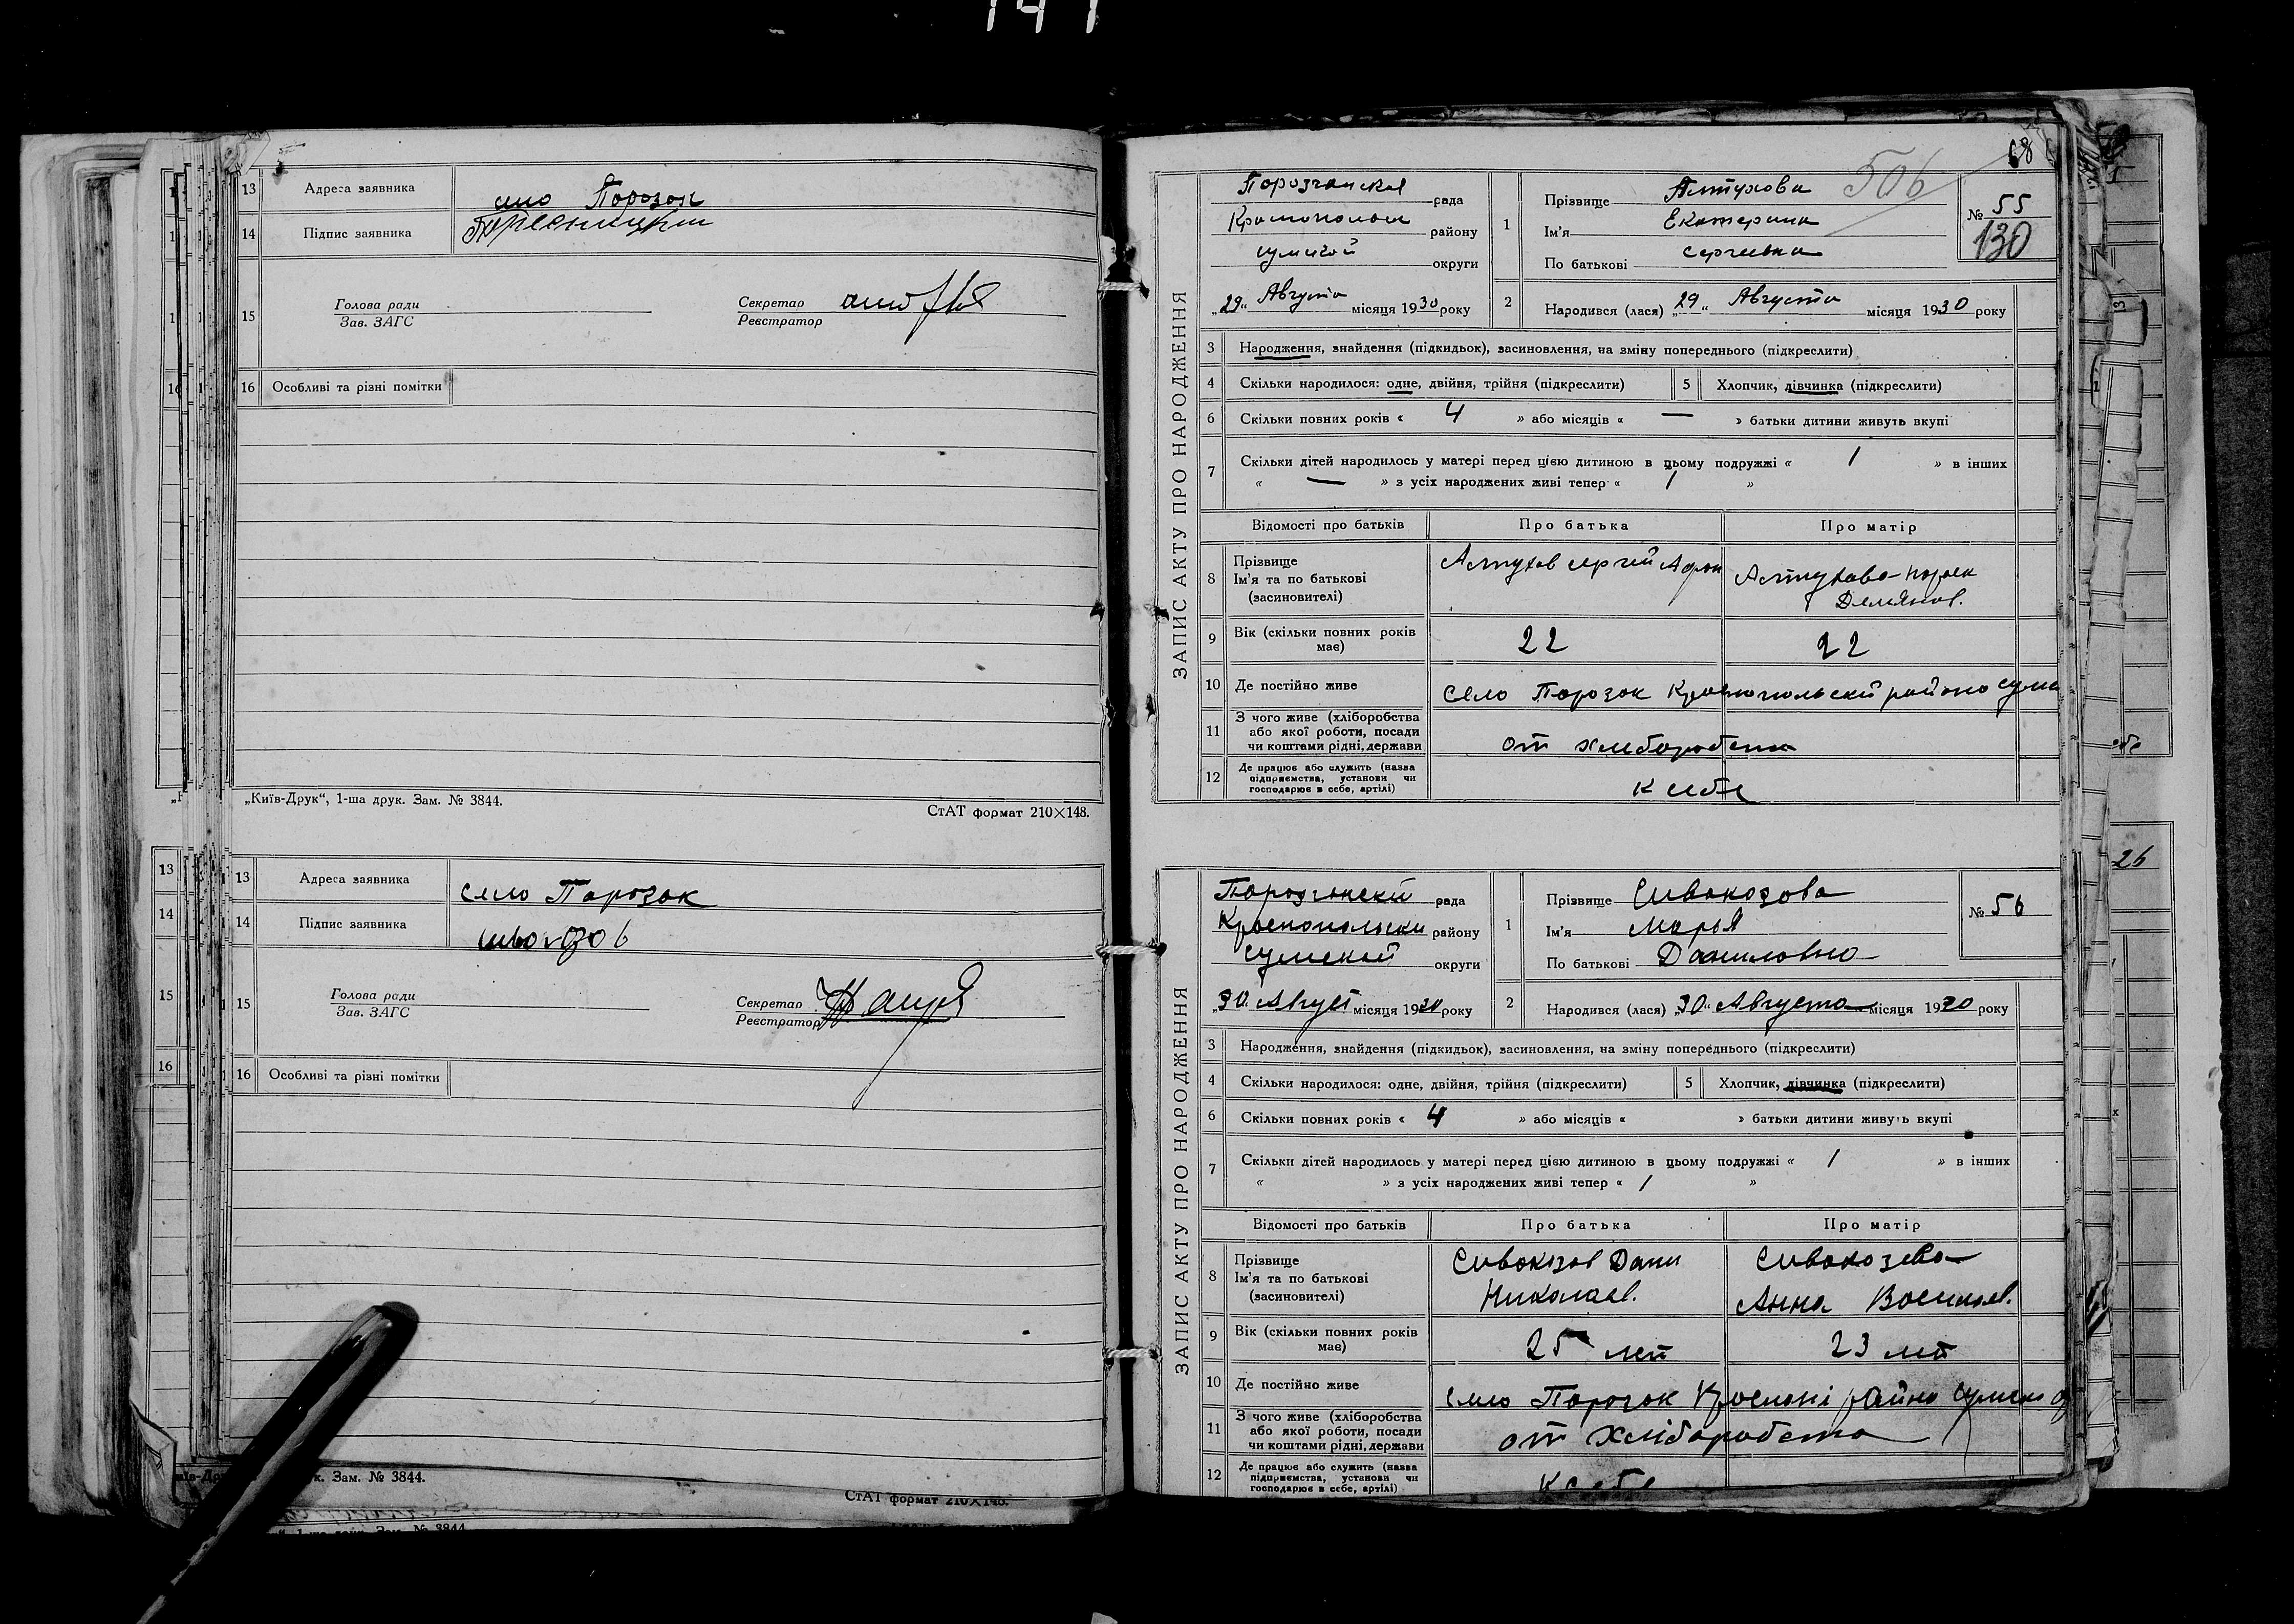 13 Адреса заявника село Порозок
14 Підпис заявника
15 Голова ради
Зав. ЗАГС
Секретар
Реєстратор
16 Особливі та різні помітки
„Київ-Друк“, 1-ша друк. Зам. № 3844.
СтАТ формат 210×148.
13 Адреса заявника село Порозок
14 Підпис заявника
15 Голова ради
Зав. ЗАГС
Секретар
Реєстратор
16 Особливі та різні помітки
Зам. № 3844.
СтАТ формат 210×148.
68
506
ЗАПИС АКТУ ПРО НАРОДЖЕННЯ
Порозчанская рада
району
сумской округи
„29“ Августа місяця 1930 року
1 Прізвище Алтухова
Ім'я Екатерина
По батькові Сергеевна
№ 55
130
2 Народився (лася) „29“ Августа місяця 1930 року
3 Народження, знайдення (підкидьок), засиновлення, на зміну попереднього (підкреслити)
4 Скільки народилося: одне, двійня, трійня (підкреслити) 5 Хлопчик, дівчинка (підкреслити)
6 Скільки повних років « 4 » або місяців « — » батьки дитини живуть вкупі
7 Скільки дітей народилось у матері перед цією дитиною в цьому подружжі « 1 » в інших
« — » з усіх народжених живі тепер « 1 »
Відомості про батьків Про батька Про матір
8 Прізвище
Ім'я та по батькові
(засиновителі)
Алтухов Сергей Афон
Алтухова
Демянов.
9 Вік (скільки повних років має) 22 22
10 Де постійно живе Село Порозок Краснопольский района сумс
11 З чого живе (хліборобства або якої роботи, посади чи коштами рідні, держави от хлеборобства
12 Де працює або служить (назва підприємства, установи чи господарює в себе, артілі) в себе
ЗАПИС АКТУ ПРО НАРОДЖЕННЯ
Порозчанский рада
Краснопольски району
Сумской округи
„30“ Август місяця 1930 року
1 Прізвище Сивокозова
Ім'я Марья
По батькові Даниловна
№ 56
2 Народився (лася) „30“ Августа місяця 1930 року
3 Народження, знайдення (підкидьок), засиновлення, на зміну попереднього (підкреслити)
4 Скільки народилося: одне, двійня, трійня (підкреслити) 5 Хлопчик, дівчинка (підкреслити)
6 Скільки повних років « 4 » або місяців « » батьки дитини живуть вкупі
7 Скільки дітей народилось у матері перед цією дитиною в цьому подружжі « 1 » в інших
« » з усіх народжених живі тепер « 1 »
Відомості про батьків Про батька Про матір
8 Прізвище
Ім'я та по батькові
(засиновителі)
Сивокозов Дани
Николаев.
Сивокозова
Анна Василев.
9 Вік (скільки повних років має) 25 лет 23 лет
10 Де постійно живе село Порозок
11 З чого живе (хліборобства або якої роботи, посади чи коштами рідні, держави от Хліборобства
12 Де працює або служить (назва підприємства, установи чи господарює в себе, артілі)
26